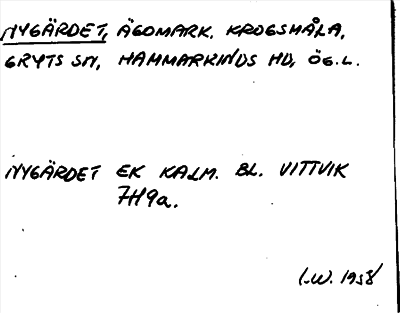 NYGÄRDET, ÄGOMARK. KROGSMÅLA,
GRYTS SN, HAMMARKINDS HD, ÖG.L.
NYGÄRDET EK KALM. BL. VITTVIK
7H9a.
L.W. 1958